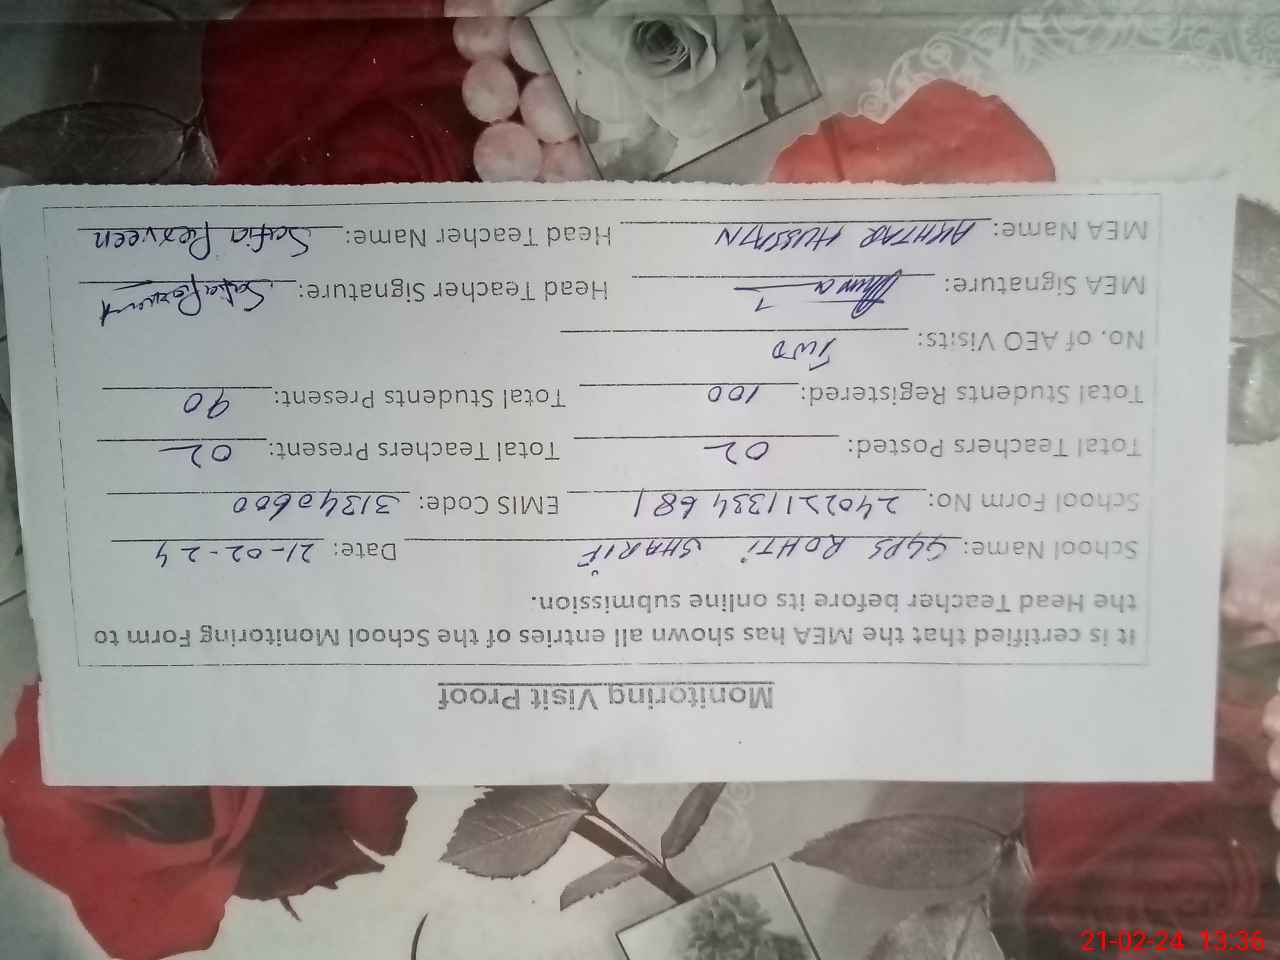 Monitoring Visit Proof
It is certified that the MEA has shown all entries of the School Monitoring Form to
the Head Teacher before its online submission.
School Name: GGPS ROHTI SHARIF Date: 21-02-24
School Form No: 240221133468 1 EMIS Code: 31340600
Total Teachers Posted: 02 Total Teachers Present: 02
Total Students Registered: 100 Total Students Present: 90
No. of AEO Visits: Two
MEA Signature: Head Teacher Signature:
MEA Name: AKHTAR HUSSAIN Head Teacher Name: Safia Perveen
21-02-24 13:36